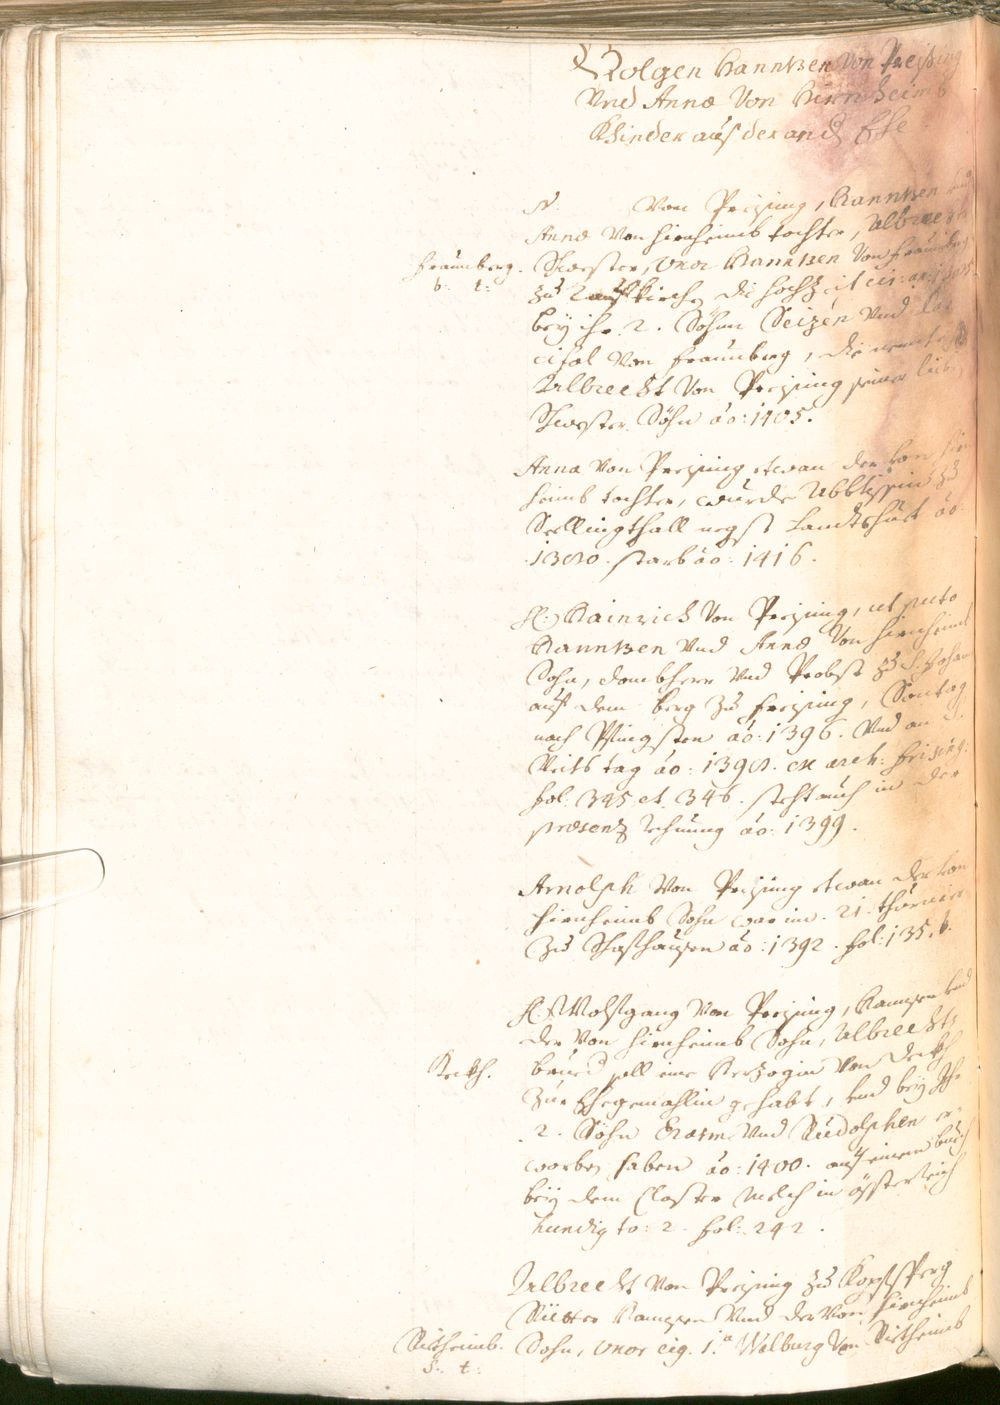 Volgen Hannßen Von Preÿsing
Vnd Annæ Von Hirnheimb
Khinder auß der and: Ehe
N. Von Preÿsing, Hannßen Vnd
Annæ Von Hirnheimb tochter, Albrechts
Fraunberg. Schwester, vxor Hannßen Von Fraunberg
b: t:
zu die hochzeit
beÿ ihr 2. Söhn Seizen Vnd
Von Fraunberg, die nennte
Albrecht Von Preÿsing seiner lieben
Schwester Söhn ao: 1405.
Anna Von Preÿsing etwan der Von Hirn
heimb tochter, wurde Abbtissin zu
Seelingthall negst Landtshuet ao:
1380. starb ao: 1416.
H: Hainrich Von Preÿsing, ut puto
Hannßen Vnd Annæ Von Hirnheimb
Sohn, dombherr Vnd Probst zu S. Johan
auf dem berg zu Freÿsing, Sontag
nach Pfingsten ao: 1396. Vnd an S.
Veits tag ao: 1398. ex arch: Frising:
fol: 345 et 346. steht auch in der
præsenz rechnung ao: 1399.
Arnolph Von Preÿsing etwan der Von
Hirnheimb Sohn war im 21. thurnier
zu Schaffhausen ao: 1392. fol: 135. b.
H: Wolfgang Von Preÿsing, Hannsen Vnd
der Von Hirnheimb Sohn, Albrechts
Teckh. brued soll eine Herzogin Von Deckh
zur Ehegemahlin gehabt, Vnd beÿ Ihr
2. Söhn Erasm Vnd Rudolphen er
worben haben ao: 1400. auß einem buech
beÿ dem Closter Melch in össterreich
Hundig to: 2. fol: 242.
Albrecht Von Preÿsing zu Kopfsperg
Ritter Hannsen Vnd der Von Hirnheimb
Rietheimb. Sohn, vxor eig. 1.a Walburg Von Rietheimb
S: t: